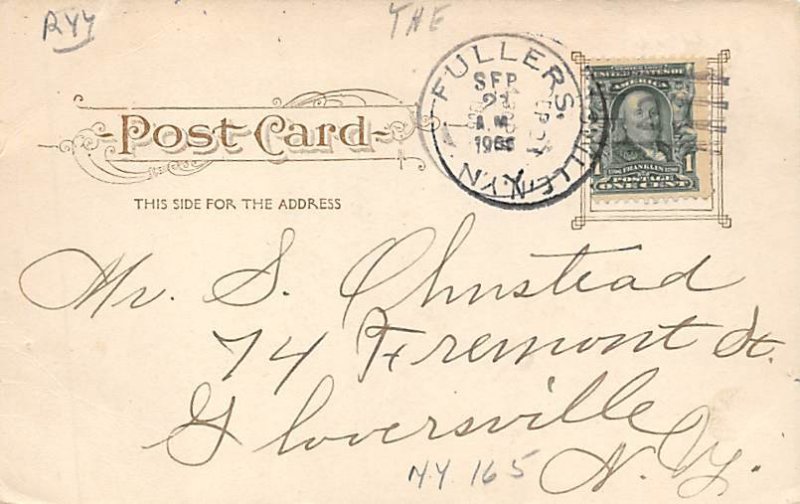 RYY THE
FULLERS. N.Y.
SEP
21
A.M.
UNITED STATES OF
AMERICA
FRANKLIN
1 POSTAGE 1
ONE CENT
Post Card
THIS SIDE FOR THE ADDRESS
Mr. S. Olmstead
74 Fremont St.
Gloversville
N. Y.
NY 165